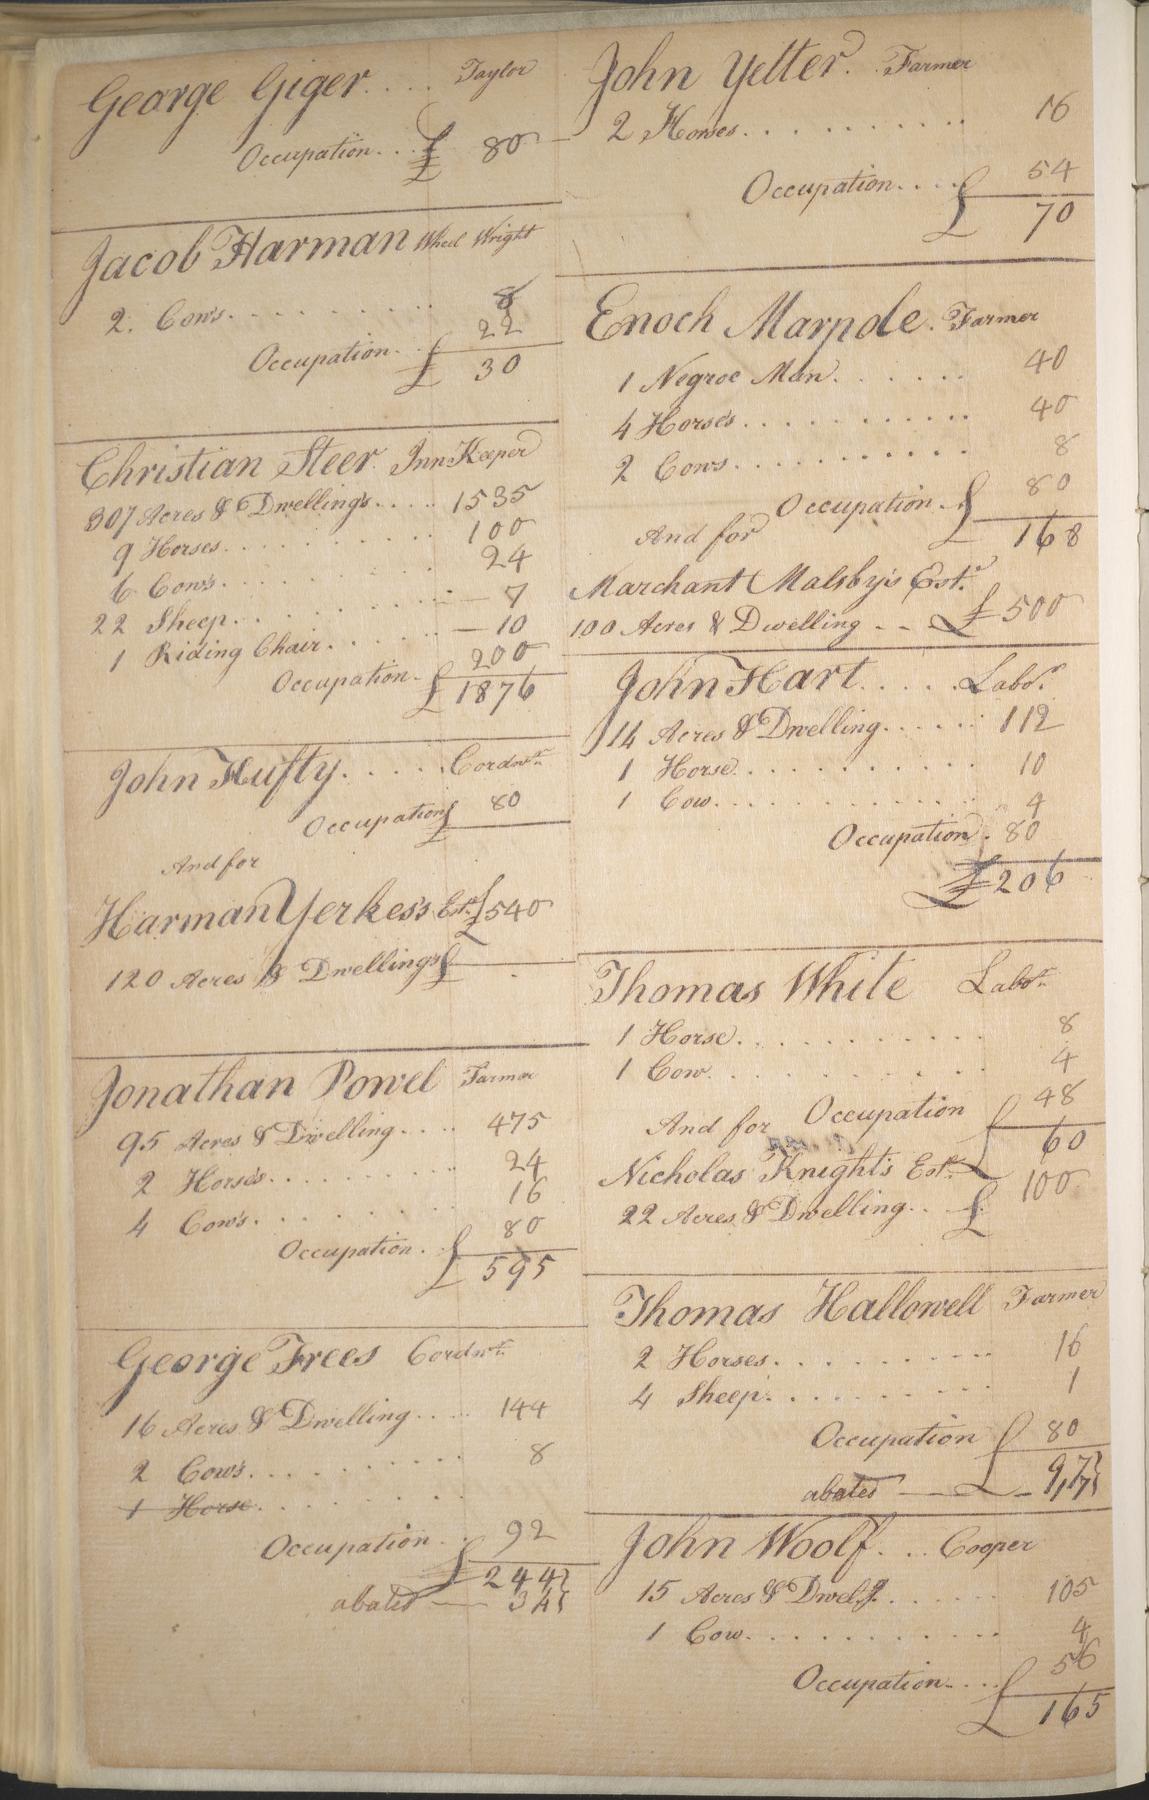 George Giger.... Taylor
Occupation... £ 80
Jacob Harman Wheel Wright
2. Cows......... 8
Occupation.. 22
£ 30
Christian Steer. Inn Keeper
307 Acres & Dwellings.... 1535
9 Horses.......... 100
6 Cows.......... 24
22 Sheep.......... 7
1 Riding Chair...... 10
Occupation. 200
£ 1876
John Hufty..... Cordwr.
Occupation £ 80
And for
Harman Yerkes's Est. £ 540
120 Acres & Dwellings £
Jonathan Powel Farmer
95 Acres & Dwelling.... 475
2 Horses........ 24
4 Cows......... 16
Occupation. 80
£ 595
George Frees Cordwr.
16 Acres & Dwelling.... 144
2 Cows.......... 8
1 Horse..........
Occupation.. 92
£ 244
abated — 34
John Yetter. Farmer
2 Horses........... 16
Occupation.... 54
£ 70
Enoch Marpole. Farmer
1 Negroe Man...... 40
4 Horses........... 40
2 Cows........... 8
Occupation.. 80
And for £ 168
Marchant Malsby's Est.
100 Acres & Dwelling -- £ 500
John Hart..... Labor.
14 Acres & Dwelling...... 112
1 Horse........... 10
1 Cow............ 4
Occupation. 80
£ 206
Thomas White Labor.
1 Horse............ 8
1 Cow............ 4
Occupation 48
And for £ 60
Nicholas Knight's Est.
22 Acres & Dwelling.. £ 100
Thomas Hallowell Farmer
2 Horses.......... 16
4 Sheep.......... 1
Occupation 80
£ 97
abated — 17
John Woolf... Cooper
15 Acres & Dwelg....... 105
1 Cow........... 4
Occupation.... 56
£ 165